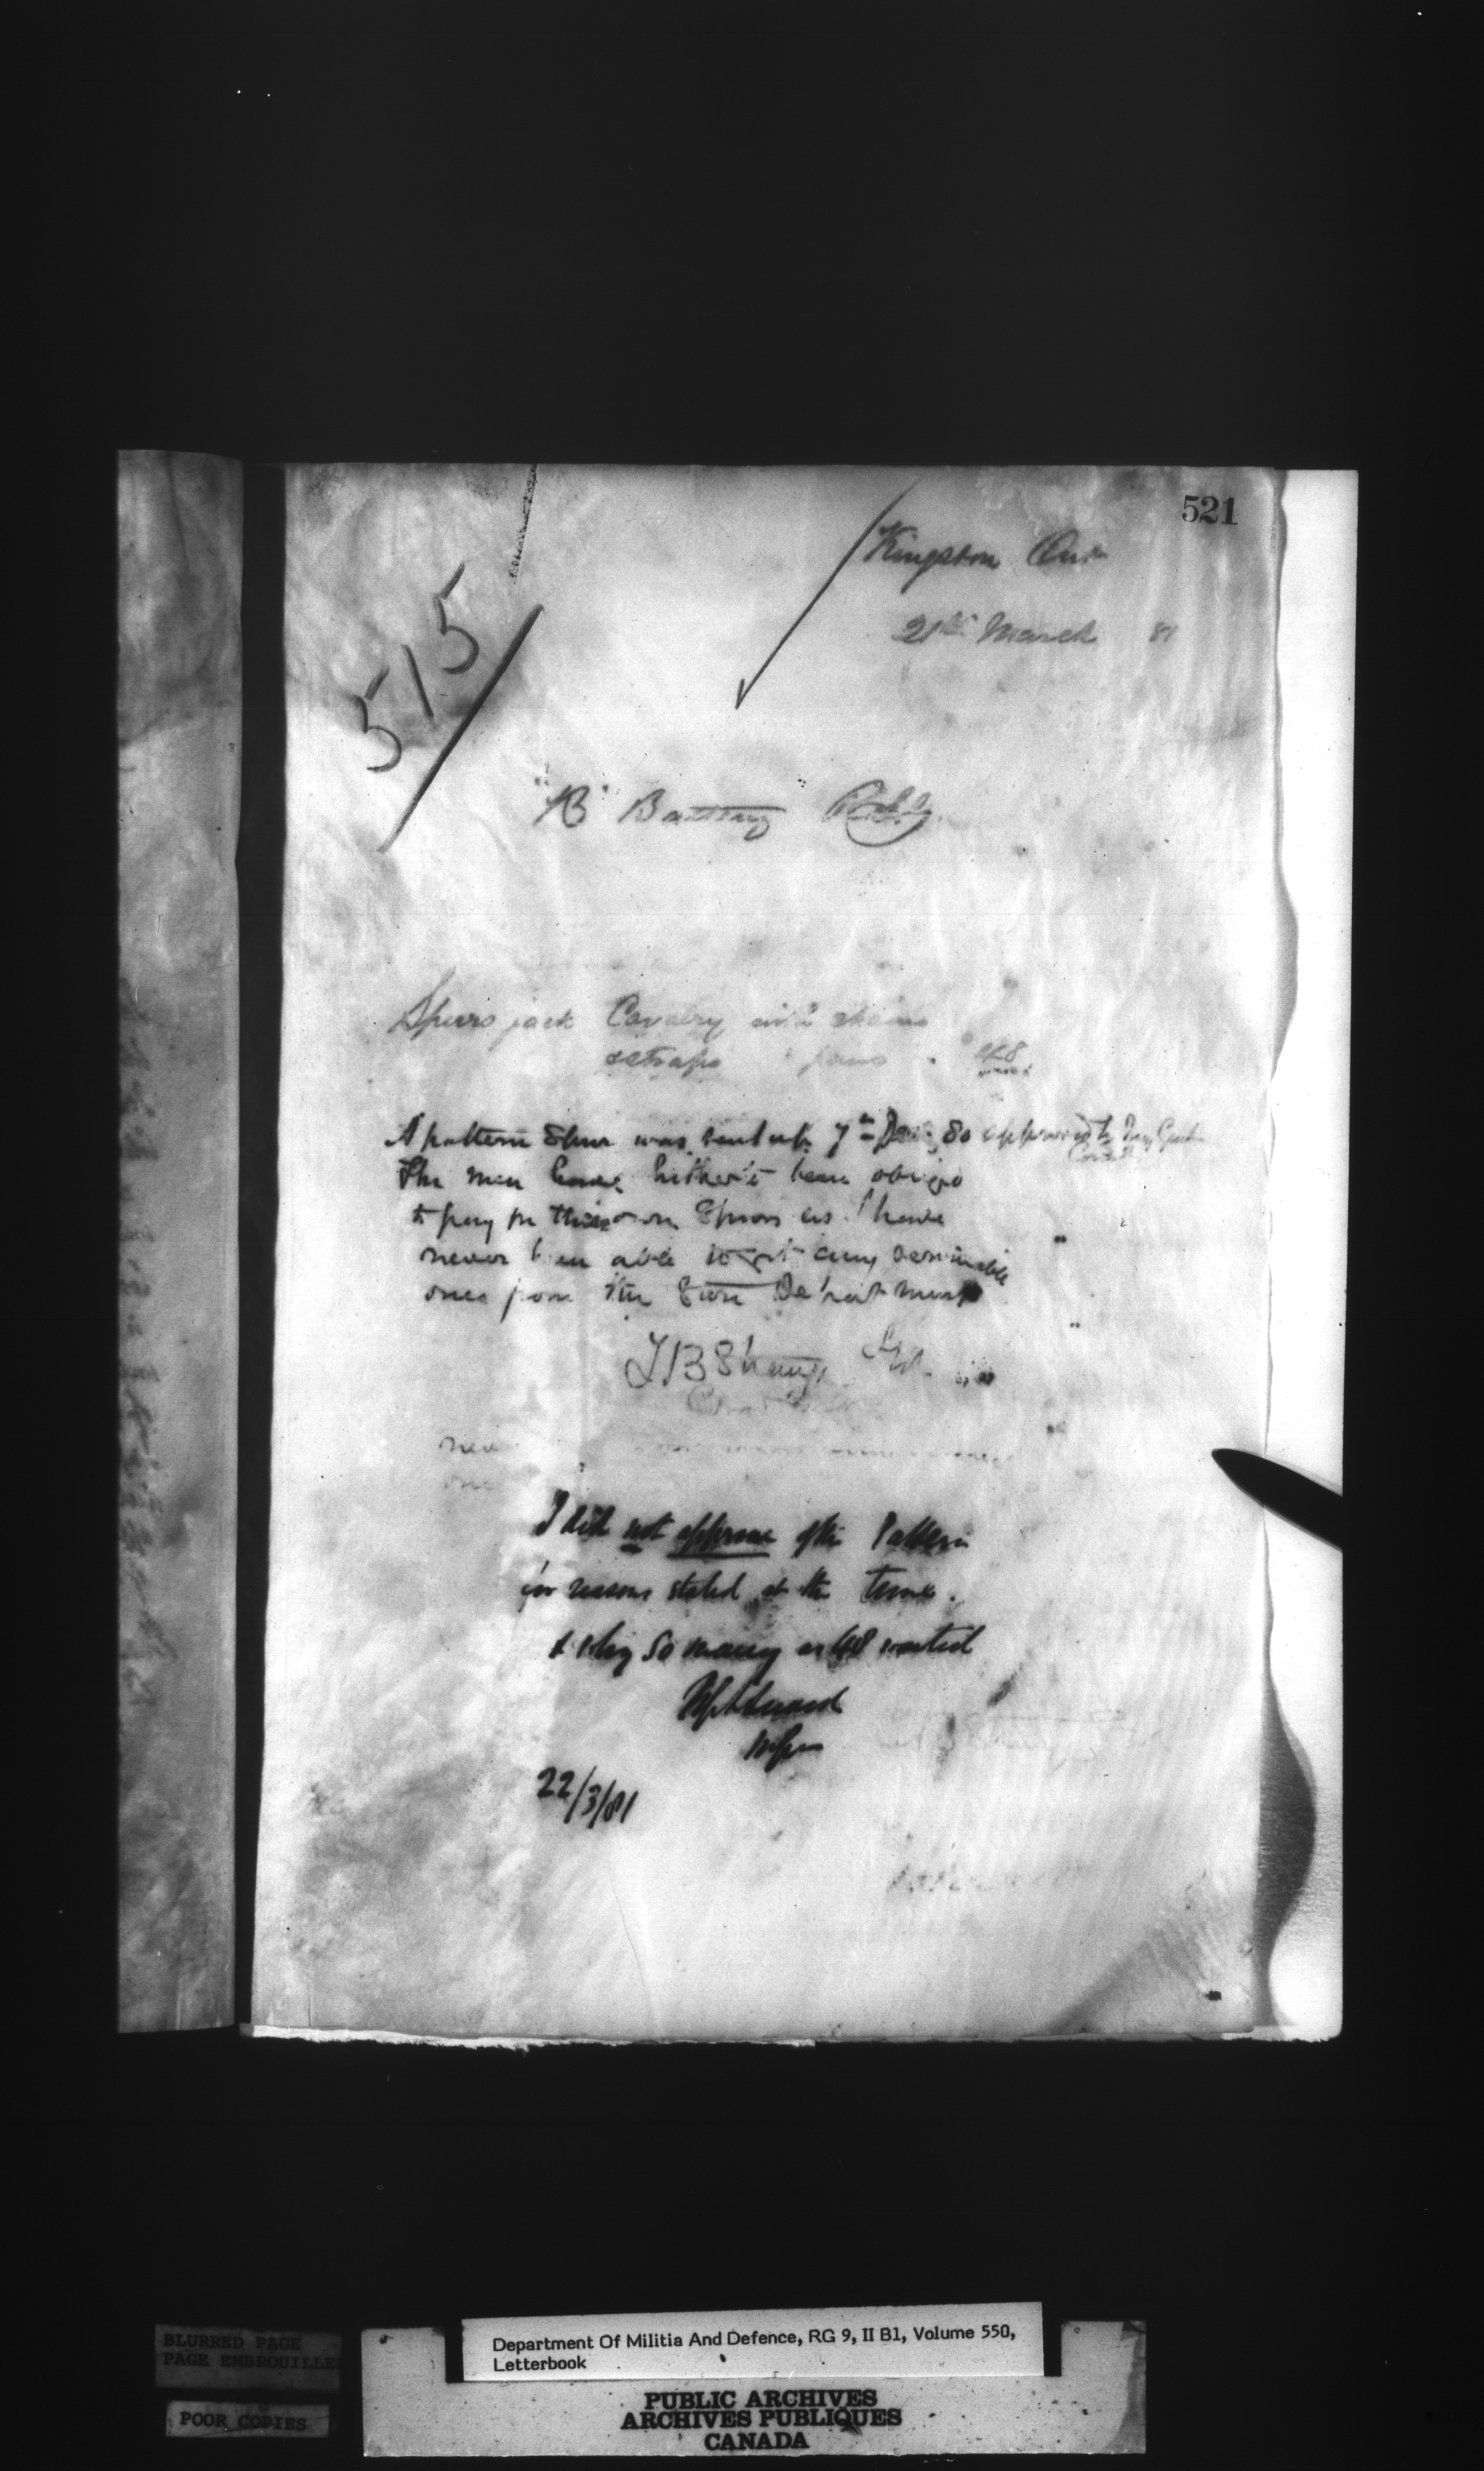 521
Kingston Ont
21st March 81
515
"B" Battery
Spurs jack Cavalry with chains
& straps pairs . 48
A pattern Spur was sent up 7th Dec 80 approved by
The men have hitherto been obliged
to pay for their own Spurs as I have
never been able to get any serviceable
ones from the Store Department
T B Strange
I did not approve of the Pattern
for reasons stated at the time.
& why so many as 48 wanted
22/3/81
Department Of Militia And Defence, RG 9, II B1, Volume 550,
Letterbook
BLURRED PAGE
PAGE EMBROUILLEE
POOR COPIES
PUBLIC ARCHIVES
ARCHIVES PUBLIQUES
CANADA